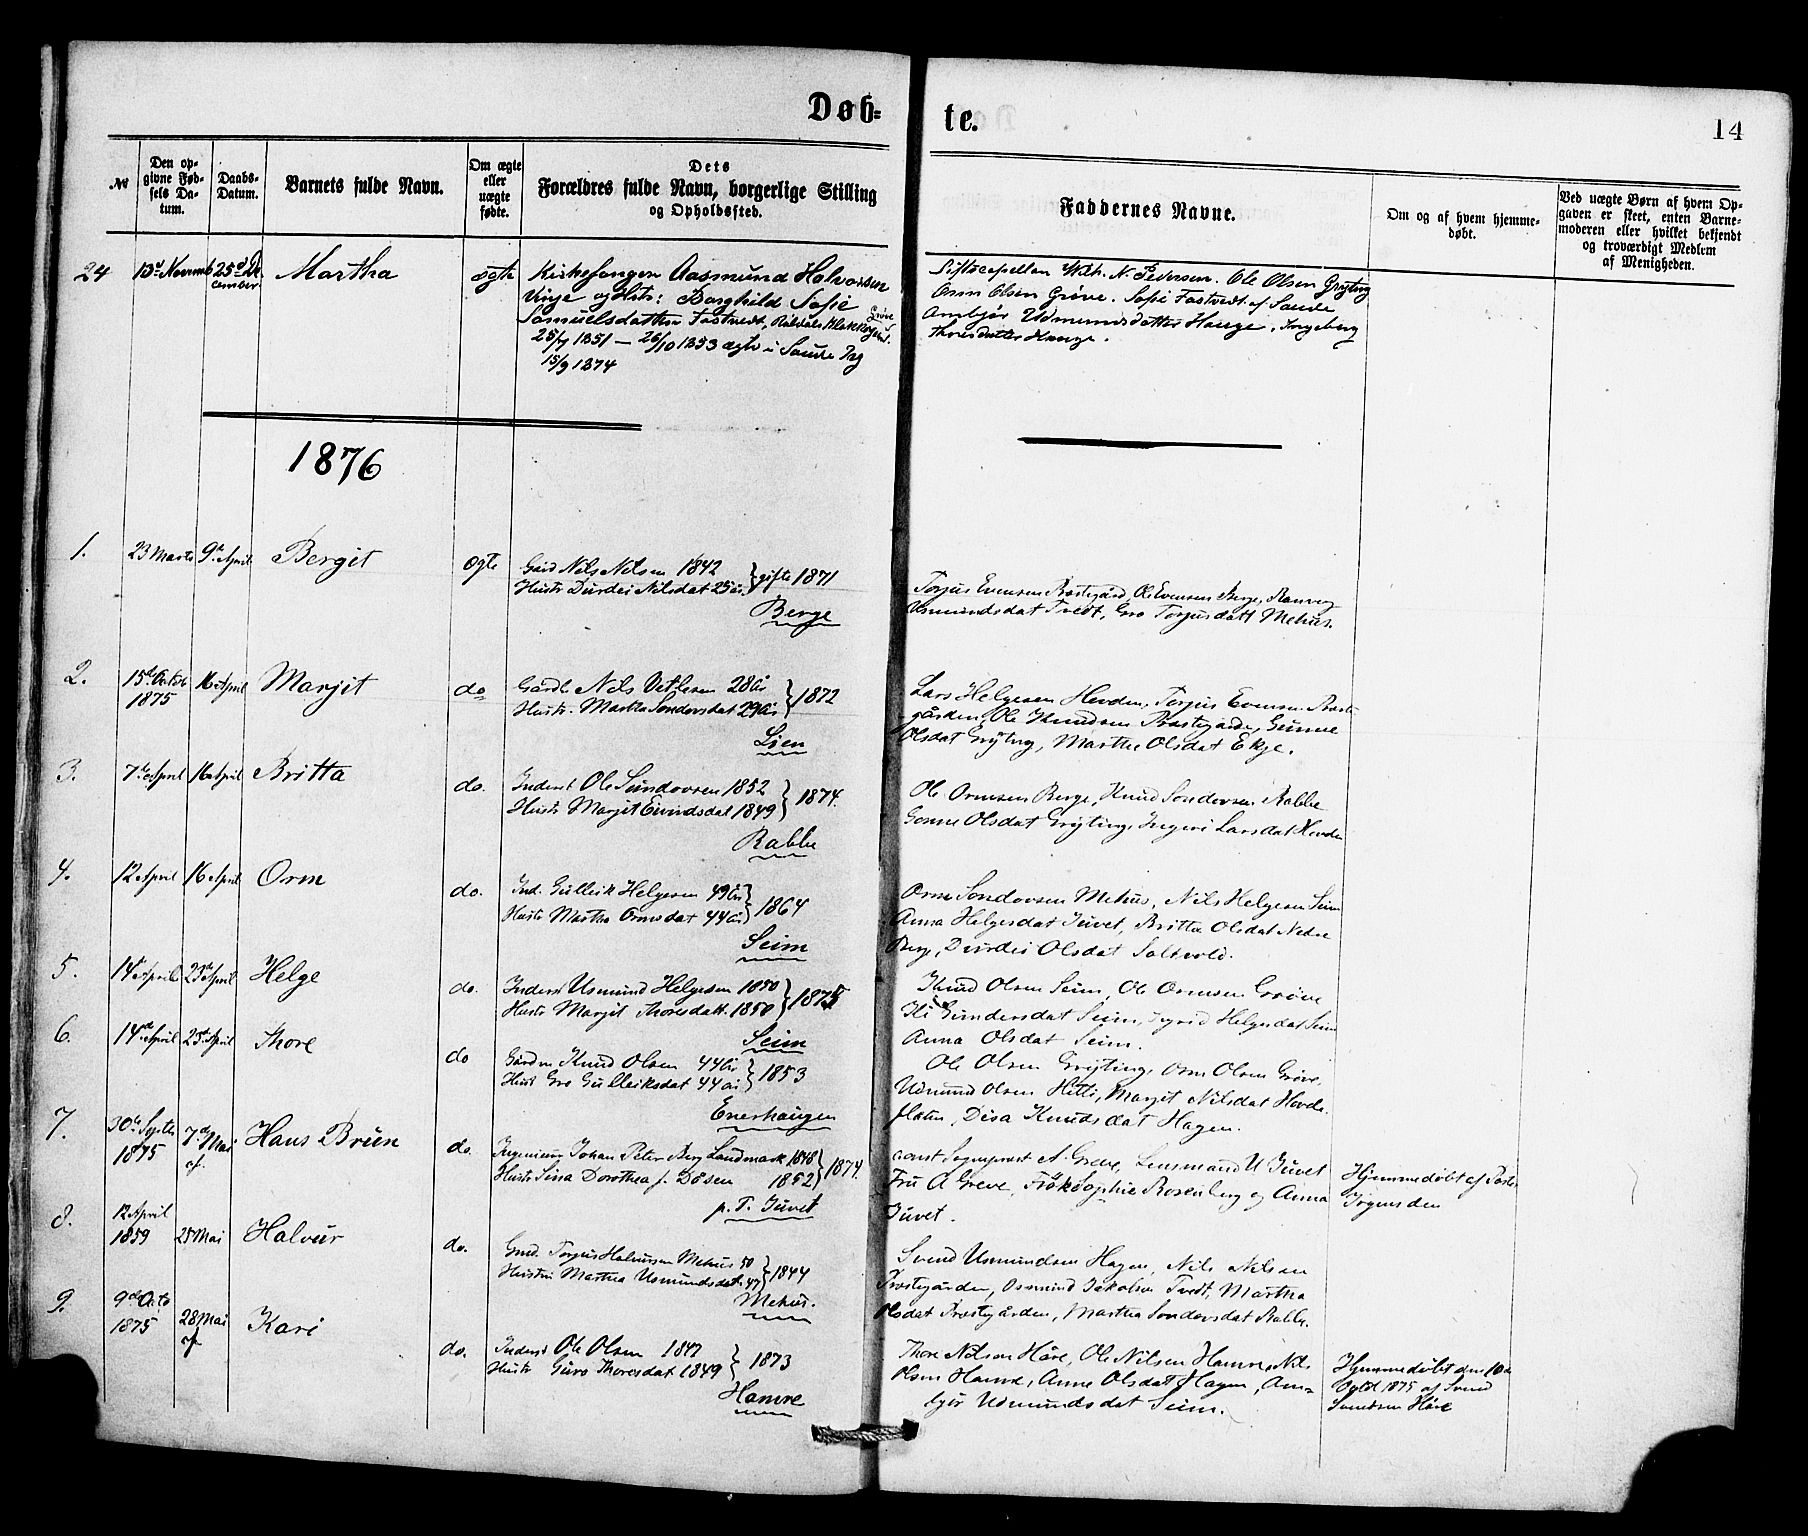 Døb=
te.
14
№
Den op-
givne Fød-
sels Da-
tum.
Daabs-
Datum.
Barnets fulde Navn.
Om ægte
eller
uægte
fødte.
Dets
Forældres fulde Navn, borgerlige Stilling
og Opholdssted.
Faddernes Navne.
Om og af hvem hjemme-
døbt.
Ved uægte Børn af hvem Op-
gaven er skeet, enten Barne-
moderen eller hvilket bekjendt
og troværdigt Medlem
af Menigheden.
24
25d De
cember
Martha
ægte
Kirkesanger Aasmund Halvorsen
Vinje og Hstr: Borghild Sofie
Samuelsdatter Fastvedt,
25/7 1851 — 26/10 1853 ægte i Saude
15/9 1874
Stiftscapellan Wilh. N. Pedersen. Ole Olsen Gryting
Orm Olsen Grøve. Sofie Fastvedt af Saude
Ambjør Udmundsdatter Hauge, Ingeborg
Thoresdatter Hauge.
1876
1.
23 Marts
9de April
Bergit
ægte
Gård Nils Nilsen 1842
Hustr Durdei Nilsdat 25 år
gifte 1871
Berge
Torjus Evensen Prestegård, Ole Evensen Berge, Ranveig
Usmundsdat Tvedt, Gro Torjusdatt Mehus.
2.
15de Octob
1875
16 April
Marjit
do
Gårdb Nils Vetlesen 28 år
Hustr. Martha Sondovsdat 29 år
1872
Lien
Lars Helgesen Hovden, Torjus Evensen Præste-
gården, Ole Knudsen Præstegården, Gunne
Olsdat Gryting, Marthe Olsdat Ekje.
3.
7de April
16 April
Britta
do.
Inderst Ole Sundovsen 1852
Hustr Marjit Eivindsdat 1849
1874.
Rabbe
Ole Ormsen Berge, Knud Sondovsen Rabbe
Gonne Olsdat Gryting, Ingeri Larsdat Hovden
4.
12 April
16 April
Orm
do.
Ind. Gulleik Helgesen 49 år
Hustr Martha Ormsdat 44 år
1864
Seim
Orm Sondovsen Mehus, Nils Helgesen Seim
Anna Helgesdat Juvet, Britta Olsdat Nedre
Berge, Durdei Olsdat Saltvold.
5.
14de April
23de April
Helge
do.
Inderst Usmund Helgesen 1850
Hustr Marjit Thoresdatt. 1850
1875
Seim
Knud Olsen Seim, Ole Ormsen Grøve
Gundersdat Seim, Sigrid Helgesdat Seim
Anna Olsdat Seim.
6.
14de April
23de April
Thore
do
Gårdm Knud Olsen 44 år
Hust Gro Gulleiksdat 44 år
1853
Enerhaugen
Ole Olsen Gryting, Orm Olsen Grøve,
Udmund Olsen Hetti, Marjit Nilsdat Hovde-
flaten, Disa Knudsdat Hagen.
7.
30de Septbr
1875
7de Mai
cf.
Hans Brun
do.
Ingeniør Johan Peter Berg Landmark 1848
Hustr Sina Dorothea f. Døsen 1852
1874.
p. T. Juvet
const Sognepræst A. Greve, Lensmand U Juvet
Fru A Greve, Frøk Sophie Rosenberg og Anna
Juvet.
Hjemmedøbt af Pastor
Irgens den
8.
12 April
1859
25 Mai
Halvur
do.
Gmd. Torjus Halvursen Mehus 50
Hustru Martha Usmundsdat. 47
1844
Mehus.
Svend Usmundsen Hagen, Nils Nilsen
Præstegården, Osmund Jakobsen Tvedt, Martha
Olsdat Præstegården, Martha Sondovsdat Rabbe.
9.
9de Octo
1875
28 Mai
cf
Kari
do.
Inderst Ole Olsen 1847
Hustr Guro Thoresdat 1849
1873
Hamre
Thore Nilsen Håve, Ole Nilsen Hamre, Nils
Olsen Hamre, Anne Olsdat Hagen, Am-
bjør Udmundsdat Seim.
Hjemmedøbt den 10de
Octob 1875 af Svend
Svendsen Håve